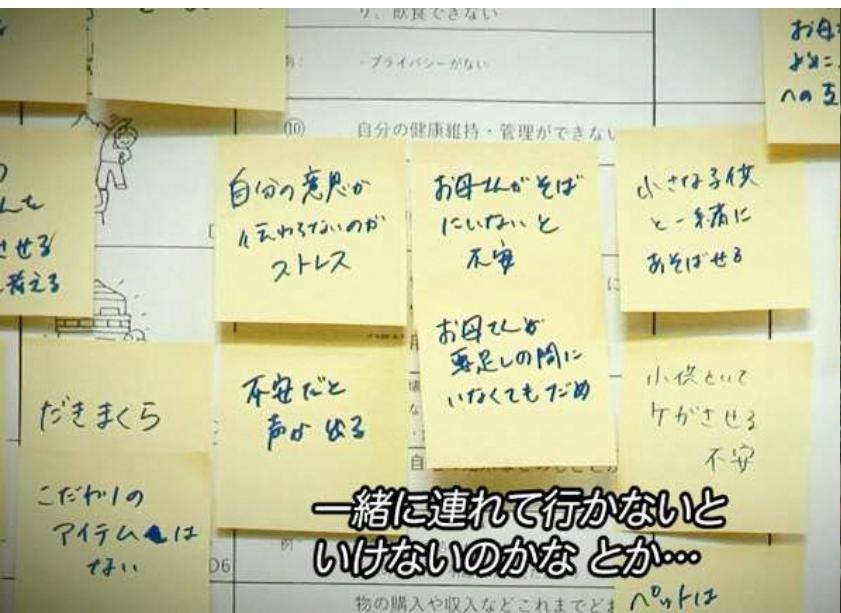 り、飲食できない
・プライバシーがない
⑩ 自分の健康維持・管理ができない
お母
への支
せる
考える
自分の意思が
伝わらないのが
ストレス
お母さんがそば
にいないと
不安
小さな子供
と一緒に
あそばせる
お母さんが
要足しの間に
いなくてもだめ
だきまくら
不安だと
声が出る
小供といて
ケガさせる
不安
こだわりの
アイテムは
ない
一緒に連れて行かないと
いけないのかな とか…
D6
物の購入や収入などこれまでど
ペットは